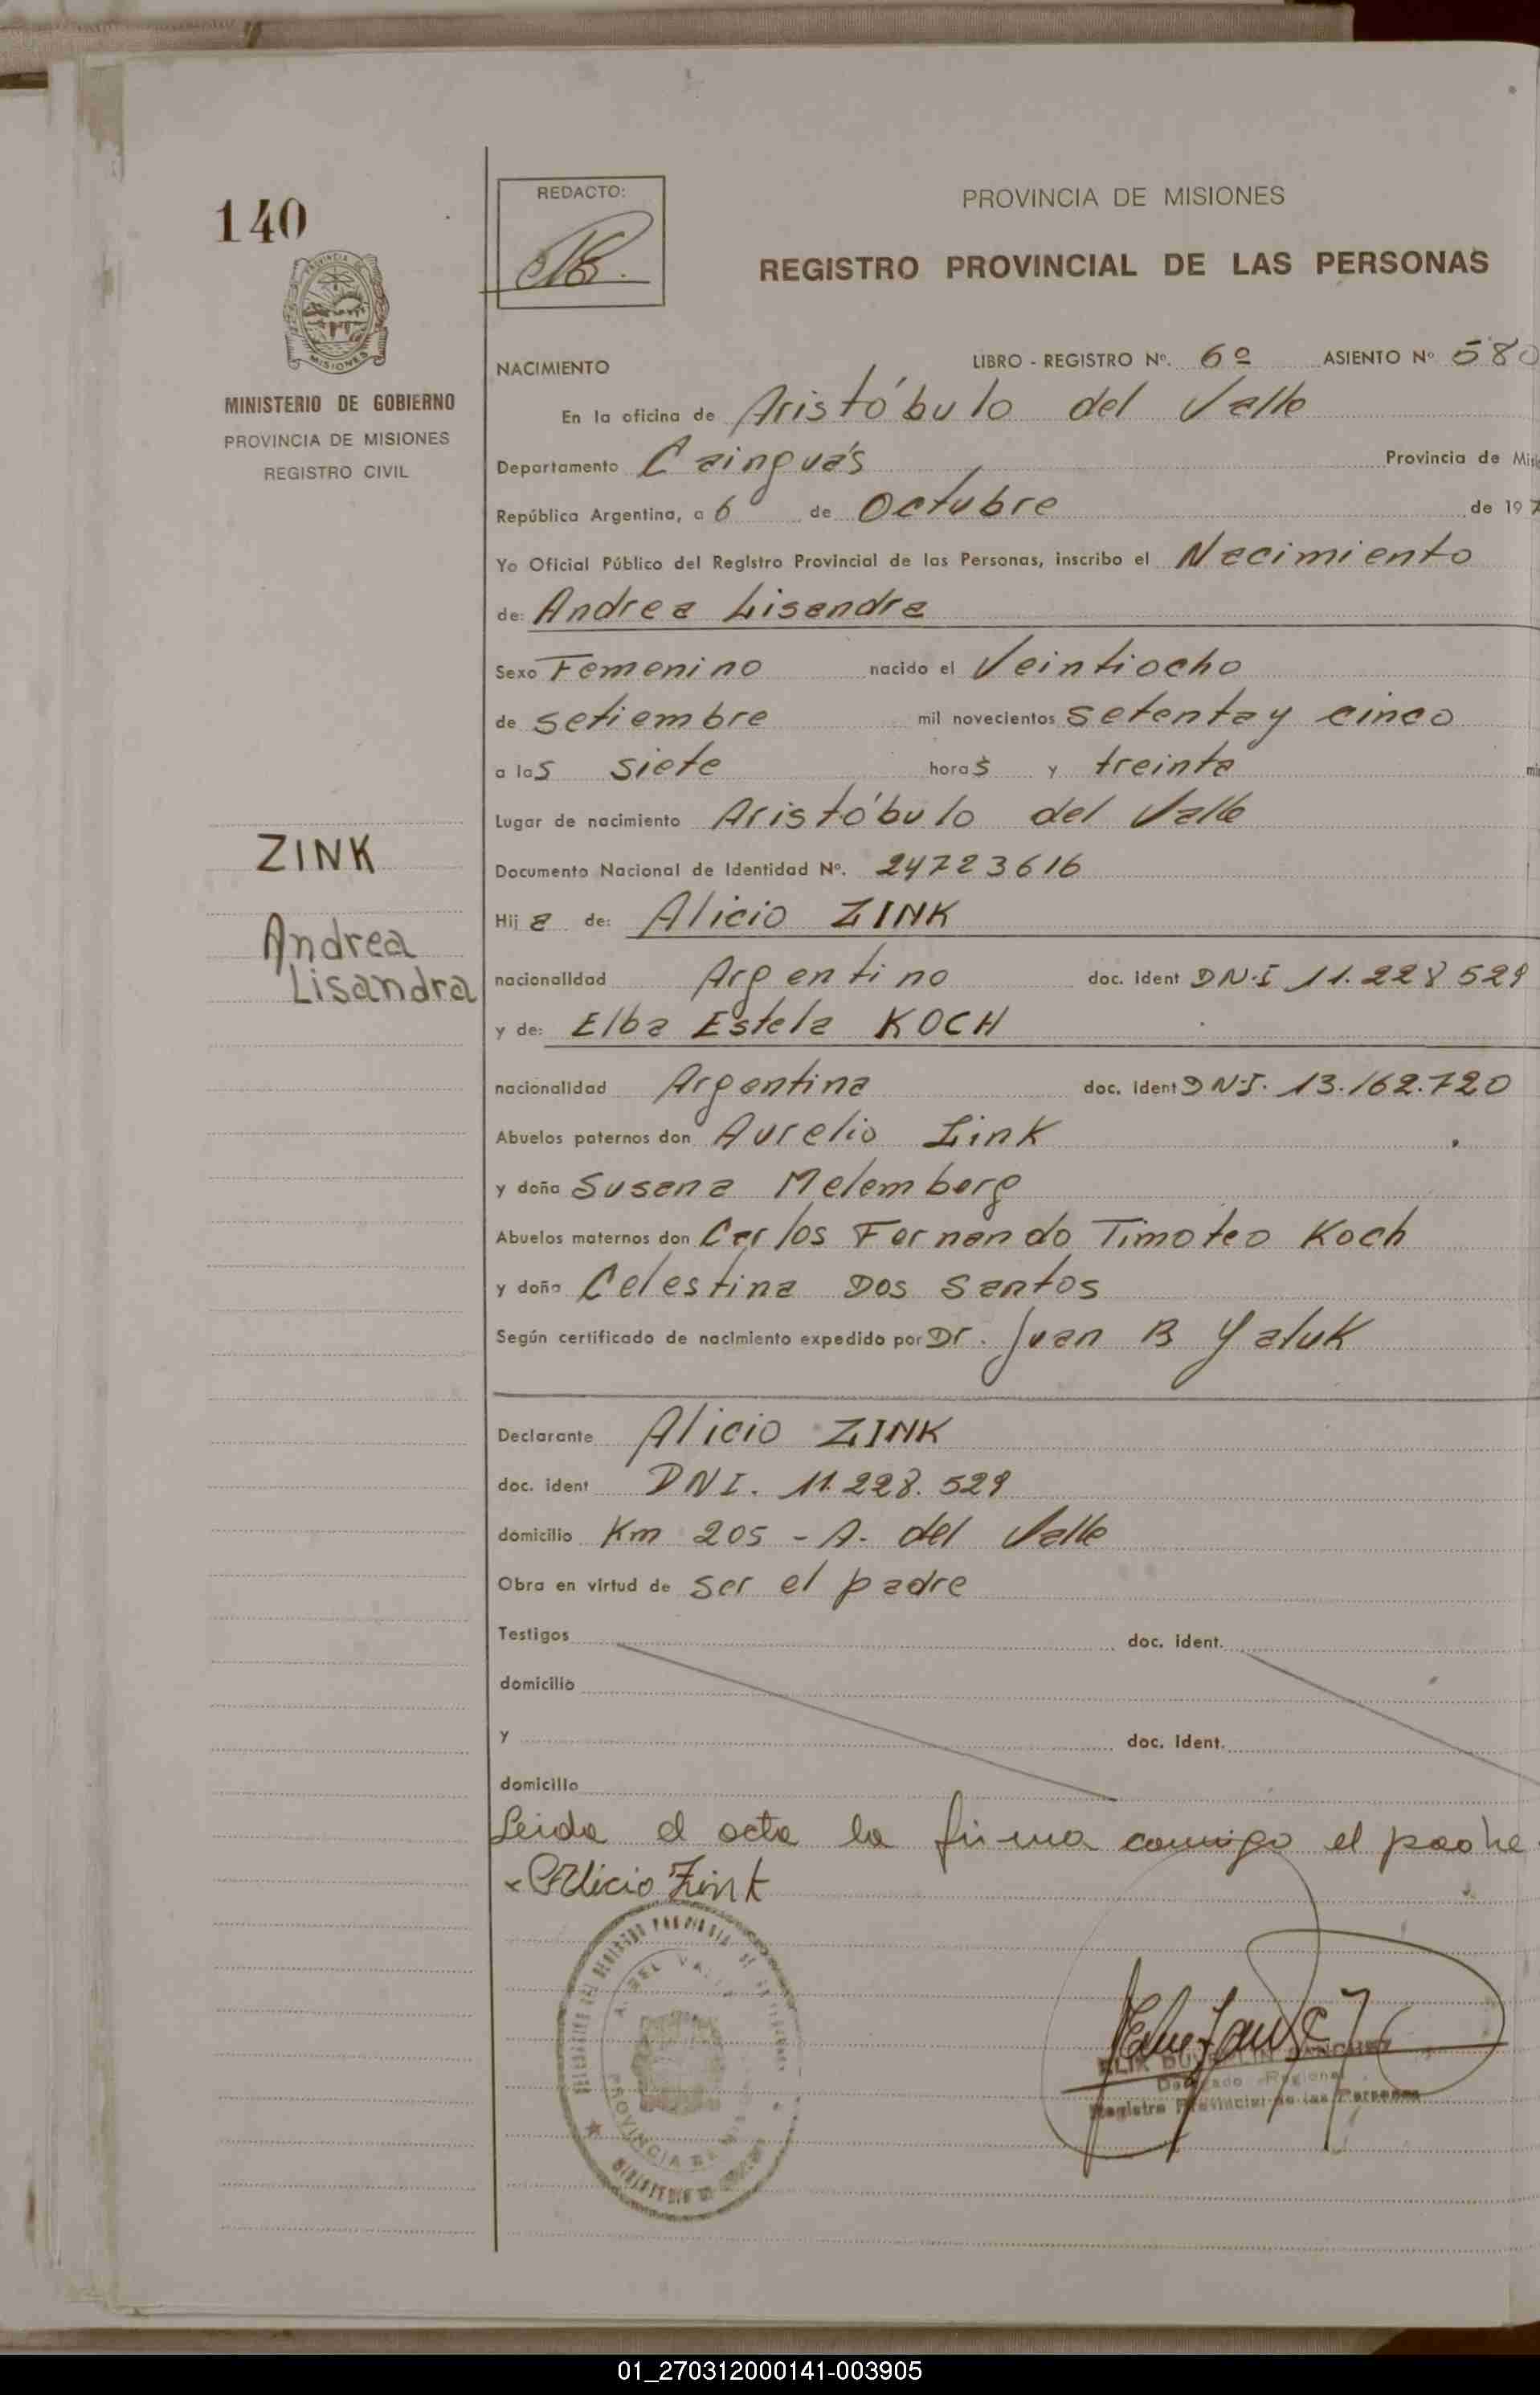 140
REDACTO:
PROVINCIA DE MISIONES
REGISTRO PROVINCIAL DE LAS PERSONAS
MINISTERIO DE GOBIERNO
PROVINCIA DE MISIONES
REGISTRO CIVIL
NACIMIENTO LIBRO - REGISTRO Nº. 6º ASIENTO Nº 580
En la oficina de Aristóbulo del Valle
Departamento Cainguás Provincia de Misi
República Argentina, a 6 de Octubre de 197
Yo Oficial Público del Registro Provincial de las Personas, inscribo el Nacimiento
de: Andrea Lisandra
Sexo Femenino nacido el Veintiocho
de setiembre mil novecientos setenta y cinco
a las siete horas y treinta mi
Lugar de nacimiento Aristóbulo del Valle
ZINK
Andrea
Lisandra
Documento Nacional de Identidad Nº. 24723616
Hija de: Alicio ZINK
nacionalidad Argentino doc. ident DN·I 11.228 529
y de: Elba Estela KOCH
nacionalidad Argentina doc. ident DN·I. 13.162.720
Abuelos paternos don Aurelio Zink
y doña Susana Melemberg
Abuelos maternos don Carlos Fernando Timoteo Koch
y doña Celestina Dos Santos
Según certificado de nacimiento expedido por Dr. Juan B Yaluk
Declarante Alicio ZINK
doc. ident DNI. 11.228.529
domicilio Km 205 - A. del Valle
Obra en virtud de ser el padre
Testigos doc. ident.
domicilio
y doc. ident.
domicilio
Leida el acta la firma conmigo el padre
x Alicio Zink
A. DEL VALLE
PROVINCIA DE MISIONES
SANCHEZ
Delegado Regional
Registro Provincial de las Personas
01_270312000141-003905